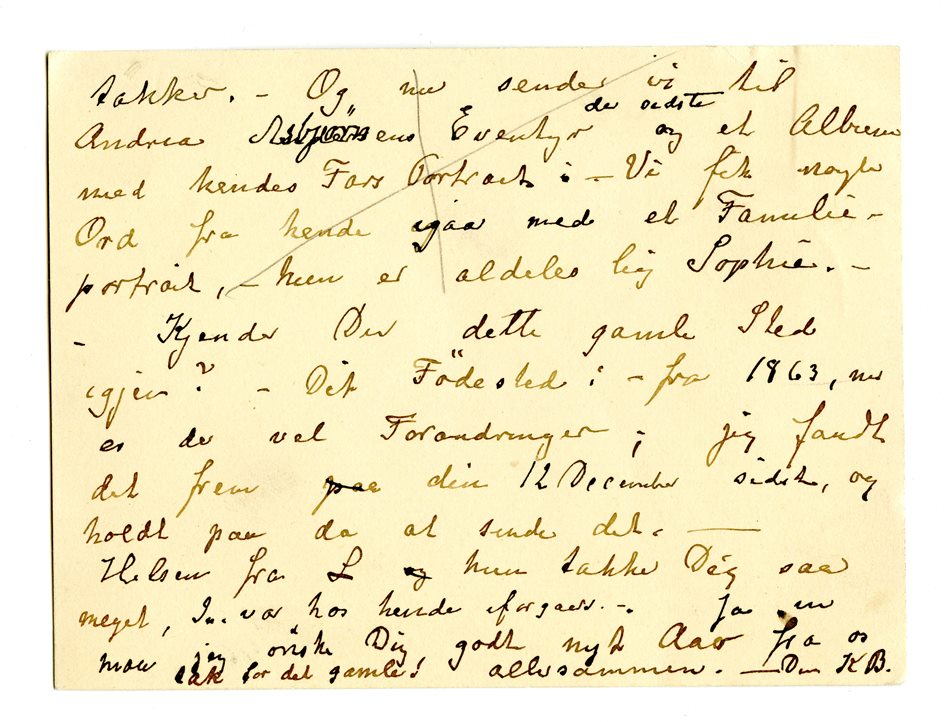 takker. – Og nu sender vi til
Andrea Asbjørnsens Eventyr de sidste og et Album
med hendes Fars Portræt i – Vi fik nogle
Ord fra hende igaar med et Familie-
portrait, – hun er aldeles lig Sophie. –
– Kjender Du dette gamle Sted
igjen? – Dit Födested: – fra 1863, nu
er der vel Forandringer; jeg fandt
det frem paa din 12 December sidst, og
holdt paa da at sende det. —
Hilsen fra L og hun takke Dig saa
meget, var hos hende iforgaars. – Ja nu
maa jeg önske Dig godt nyt Aar fra os
tak for det gamle! allesammen. – Din KB.